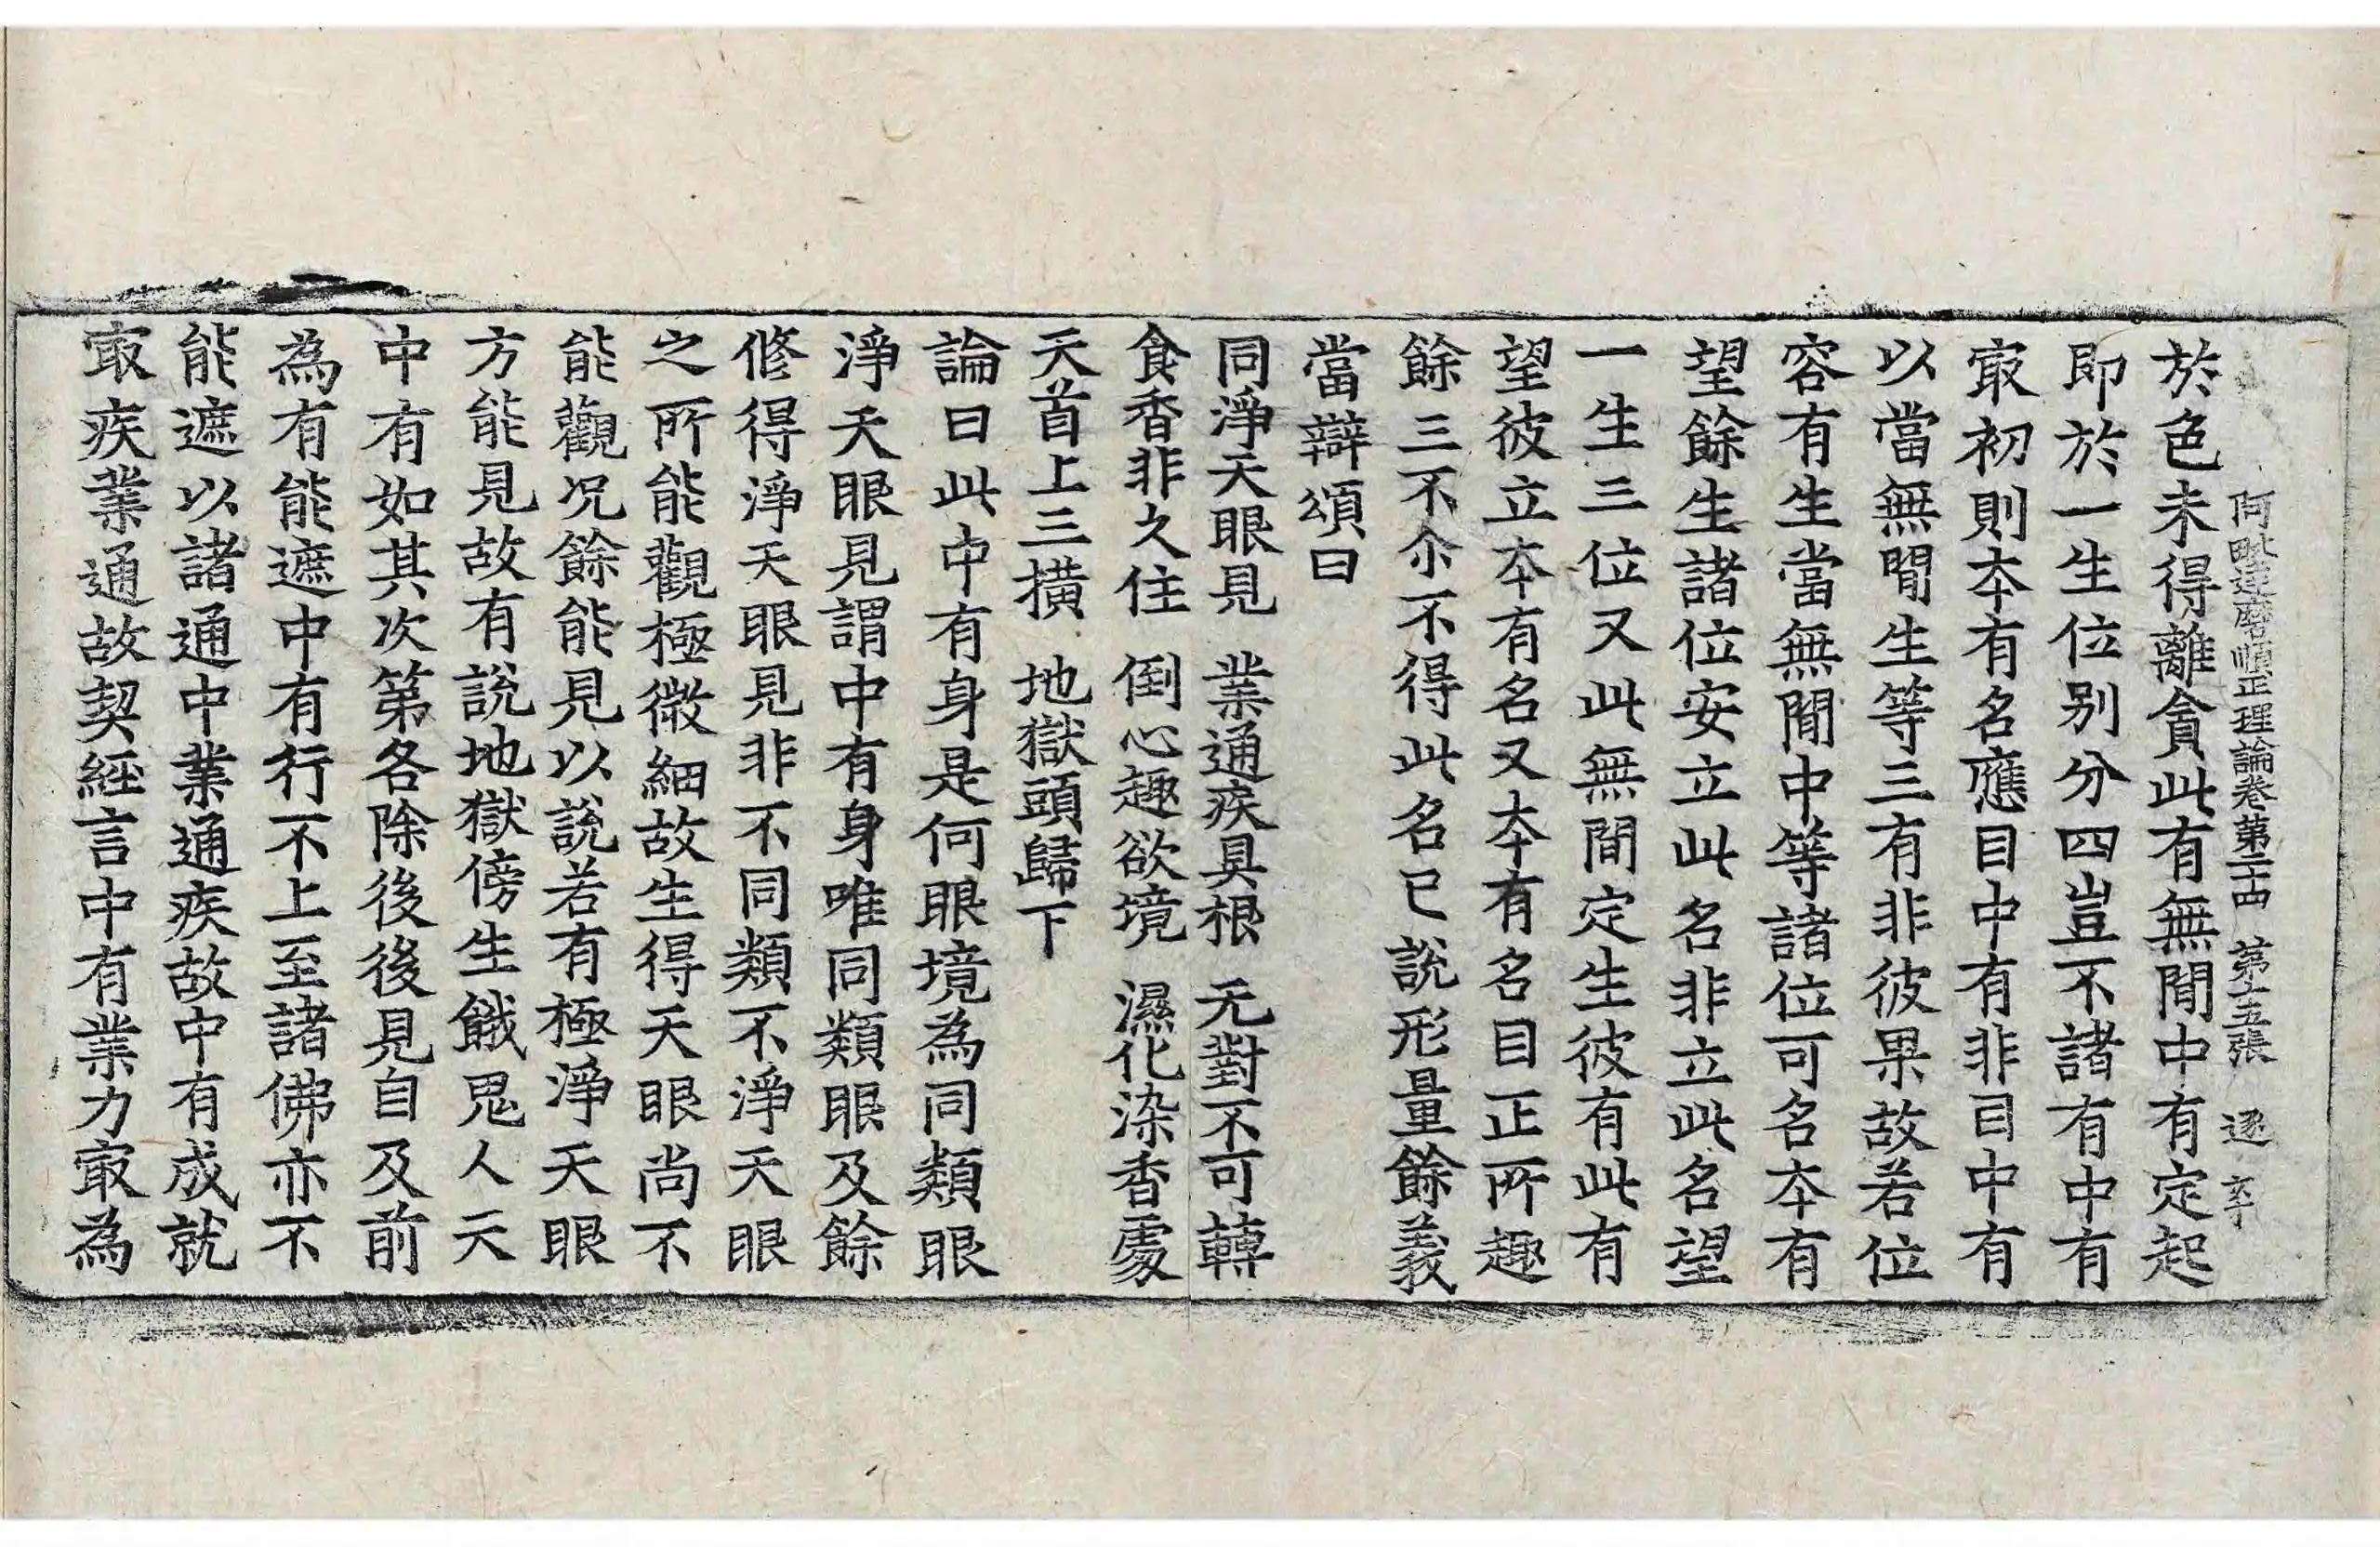 阿毗達磨順正理論卷第二十四　第十五張　逐　卒
於色未得離貪此有無閒中有定起
即於一生位别分四豈不諸有中有
㝡初則夲有名應目中有非目中有
以當無閒生等三有非彼果故若位
容有生當無閒中等諸位可名夲有
望餘生諸位安立此名非立此名望
一生三位又此無閒定生彼有此有
望彼立夲有名又夲有名目正所趣
餘三不尒不得此名已說形量餘義
當辯頌曰
同淨天眼見　業通疾具根　无對不可轉
食香非久住　倒心趣欲境　濕化染香處
天首上三撗　地獄頭歸下
論曰此中有身是何眼境為同類眼
淨天眼見謂中有身唯同類眼及餘
修得淨天眼見非不同類不淨天眼
之所能觀極微細故生得天眼尚不
能觀况餘能見以說若有極淨天眼
方能見故有說地獄傍生餓鬼人天
中有如其次第各除後後見自及前
為有能遮中有行不上至諸佛亦不
能遮以諸通中業通疾故中有成就
㝡疾業通故契經言中有業力㝡為